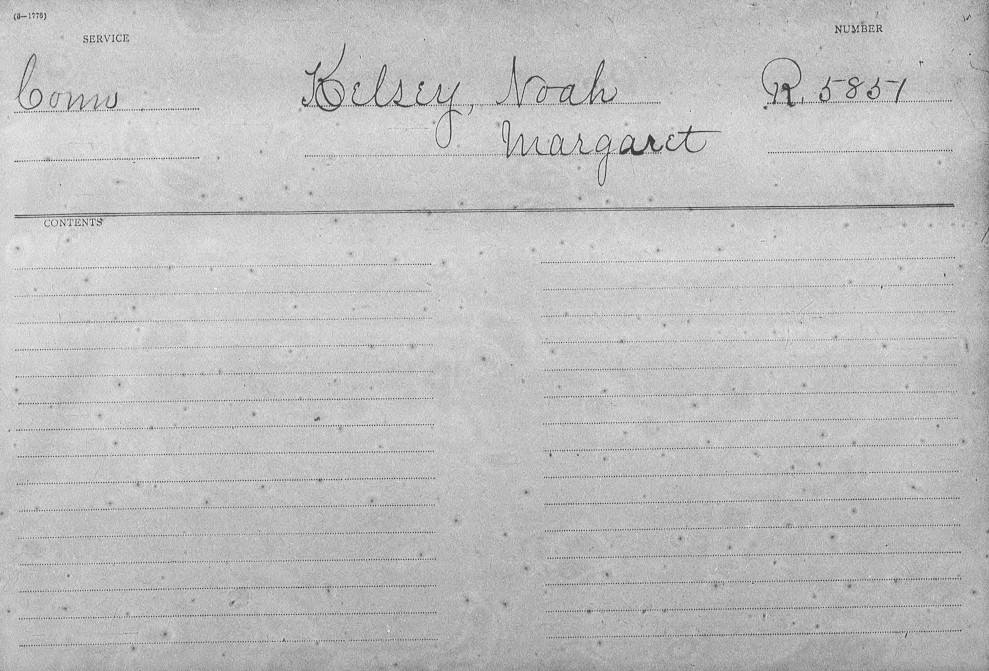 (3—1776)
SERVICE
NUMBER
Conn
Kelsey, Noah
R. 5851
Margaret
CONTENTS